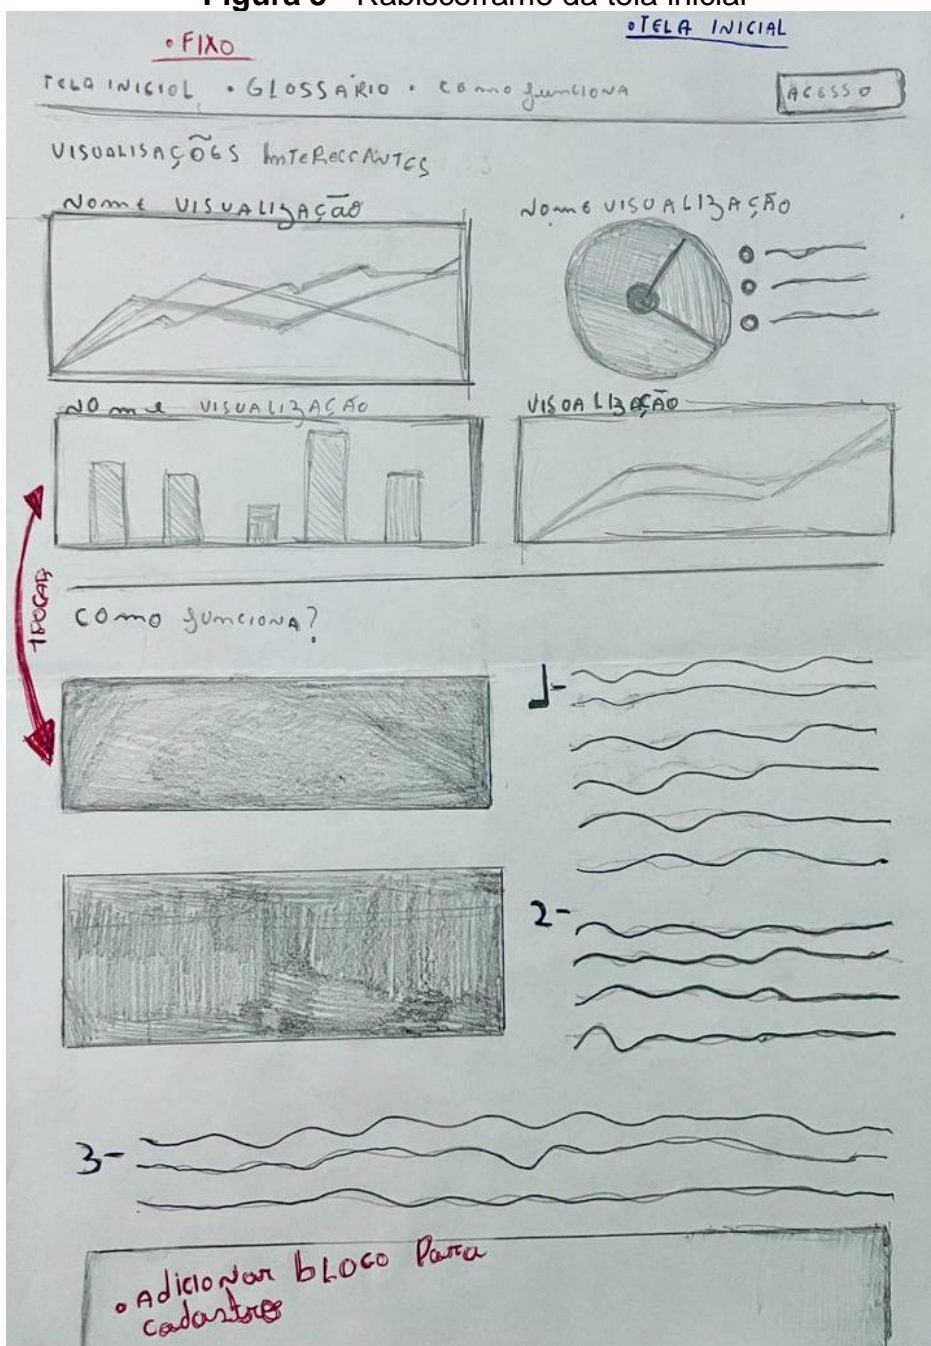 Figura 3 - Rabiscoframe da tela inicial
• TELA INICIAL
• FIXO
TELA INICIOL • GLOSSÁRIO • como funciona
ACESSO
VISUALISAÇÕES INTERESSANTES
Nome VISUALIZAÇÃO
Nome VISUALIZAÇÃO
NOme VISUALIZAÇÃO
VISUALIZAÇÃO
TROCAR
COmo funciona?
1-
2-
3-
• Adicionar bloco Para
cadastros